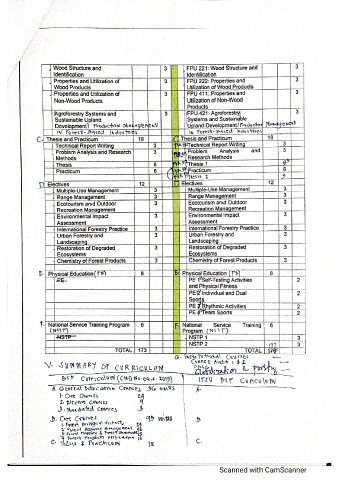 Wood Structure and Identification 3 FPU 221: Wood Structure and Identification 3
Properties and Utilization of Wood Products 3 FPU 222: Properties and Utilization of Wood Products 3
Properties and Utilization of Non-Wood Products 3 FPU 411: Properties and Utilization of Non-Wood Products 3
Agroforestry Systems and Sustainable Upland Development/ Production Management in Forest-Based Industries 3 FPU 421: Agroforestry Systems and Sustainable Upland Development/ Production Management in Forest-Based Industries 3
C. Thesis and Practicum 18 C. Thesis and Practicum 18
Technical Report Writing 3 Technical Report Writing 3
Problem Analysis and Research Methods 3 Problem Analysis and Research Methods 3
Thesis 6 Thesis 1
Practicum 6 Practicum 6
Thesis 2
D. Electives 12 D. Electives 12
Multiple-Use Management 3 Multiple-Use Management 3
Range Management 3 Range Management 3
Ecotourism and Outdoor Recreation Management 3 Ecotourism and Outdoor Recreation Management 3
Environmental Impact Assessment 3 Environmental Impact Assessment 3
International Forestry Practice 3 International Forestry Practice 3
Urban Forestry and Landscaping 3 Urban Forestry and Landscaping 3
Restoration of Degraded Ecosystems 3 Restoration of Degraded Ecosystems 3
Chemistry of Forest Products 3 Chemistry of Forest Products 3
E. Physical Education (PE) 8 E. Physical Education (PE) 8
PE PE 1 Self-Testing Activities and Physical Fitness 2
PE 2 Individual and Dual Sports 2
PE 3 Rhythmic Activities 2
PE 4 Team Sports 2
F. National Service Training Program (NSTP) 6 F. National Service Training Program (NSTP) 6
NSTP NSTP 1 3
NSTP 2 3
TOTAL 173 TOTAL
G. Institutional Courses
V. SUMMARY OF CURRICULUM
BSF Curriculum BSF CURRICULUM
A. General Education Courses 36 units A.
1. Core Courses 24
2. Elective Courses 9
3. Mandated Courses 3
B. Core Courses B.
C. Thesis & Practicum 18 C.
Scanned with CamScanner